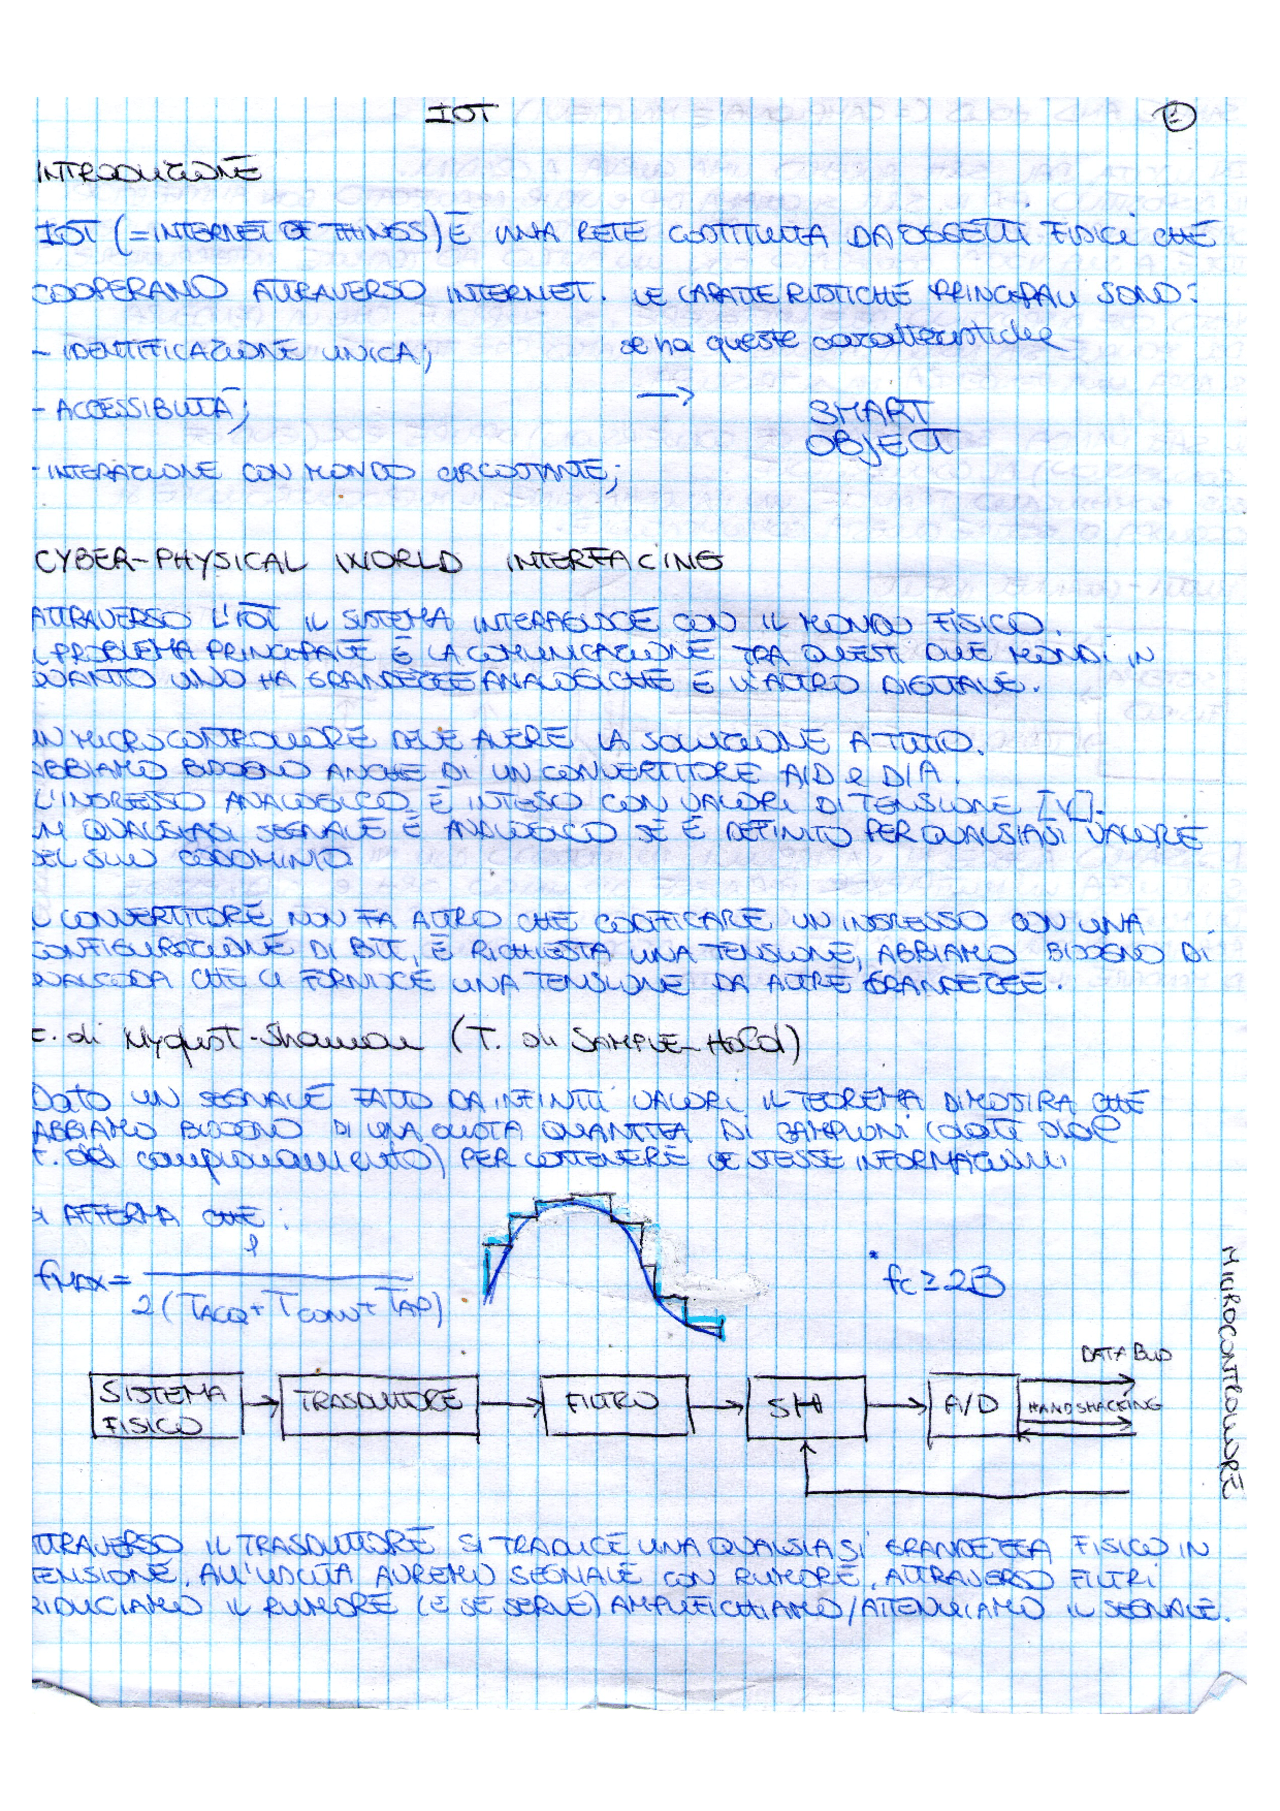 IOT
1
INTRODUZIONE
IOT (=INTERNET OF THINGS) È UNA RETE COSTITUITA DA OGGETTI FISICI CHE
COOPERANO ATTRAVERSO INTERNET. LE CARATTERISTICHE PRINCIPALI SONO:
- IDENTIFICAZIONE UNICA;
se ha queste caratteristiche
- ACCESSIBILITÀ;
→ SMART
OBJECT
- INTERAZIONE CON MONDO CIRCOSTANTE;
CYBER-PHYSICAL WORLD INTERFACING
ATTRAVERSO L'IOT IL SISTEMA INTERAGISCE CON IL MONDO FISICO.
IL PROBLEMA PRINCIPALE È LA COMUNICAZIONE TRA QUESTI DUE MONDI IN
QUANTO UNO HA GRANDEZZE ANALOGICHE E L'ALTRO DIGITALE.
UN MICROCONTROLLORE DEVE AVERE LA SOLUZIONE A TUTTO.
ABBIAMO BISOGNO ANCHE DI UN CONVERTITORE A/D e D/A.
L'INGRESSO ANALOGICO È INTESO CON VALORI DI TENSIONE [V].
UN QUALSIASI SEGNALE È ANALOGICO SE È DEFINITO PER QUALSIASI VALORE
DEL SUO CODOMINIO
IL CONVERTITORE NON FA ALTRO CHE CODIFICARE UN INGRESSO CON UNA
CONFIGURAZIONE DI BIT, È RICHIESTA UNA TENSIONE, ABBIAMO BISOGNO DI
QUALCOSA CHE CI FORNISCE UNA TENSIONE DA ALTRE GRANDEZZE.
T. di Nyquist-Shannon (T. di SAMPLE-HOLD)
DATO UN SEGNALE FATTO DA INFINITI VALORI IL TEOREMA DIMOSTRA CHE
ABBIAMO BISOGNO DI UNA GIUSTA QUANTITÀ DI CAMPIONI (dati dal
T. del campionamento) PER CONTENERE LE STESSE INFORMAZIONI
SI AFFERMA CHE:
fMAX = 1 / 2(TACQ + TCONV + TAP)
* fc ≥ 2B
DATA BUS
SISTEMA
FISICO
TRASDUTTORE
FILTRO
SH
A/D
HANDSHACKING
MICROCONTROLLORE
ATTRAVERSO IL TRASDUTTORE SI TRADUCE UNA QUALSIASI GRANDEZZA FISICO IN
TENSIONE. ALL'USCITA AVREMO SEGNALE CON RUMORE, ATTRAVERSO FILTRI
RIDUCIAMO IL RUMORE (E SE SERVE) AMPLIFICHIAMO/ATTENUIAMO IL SEGNALE.